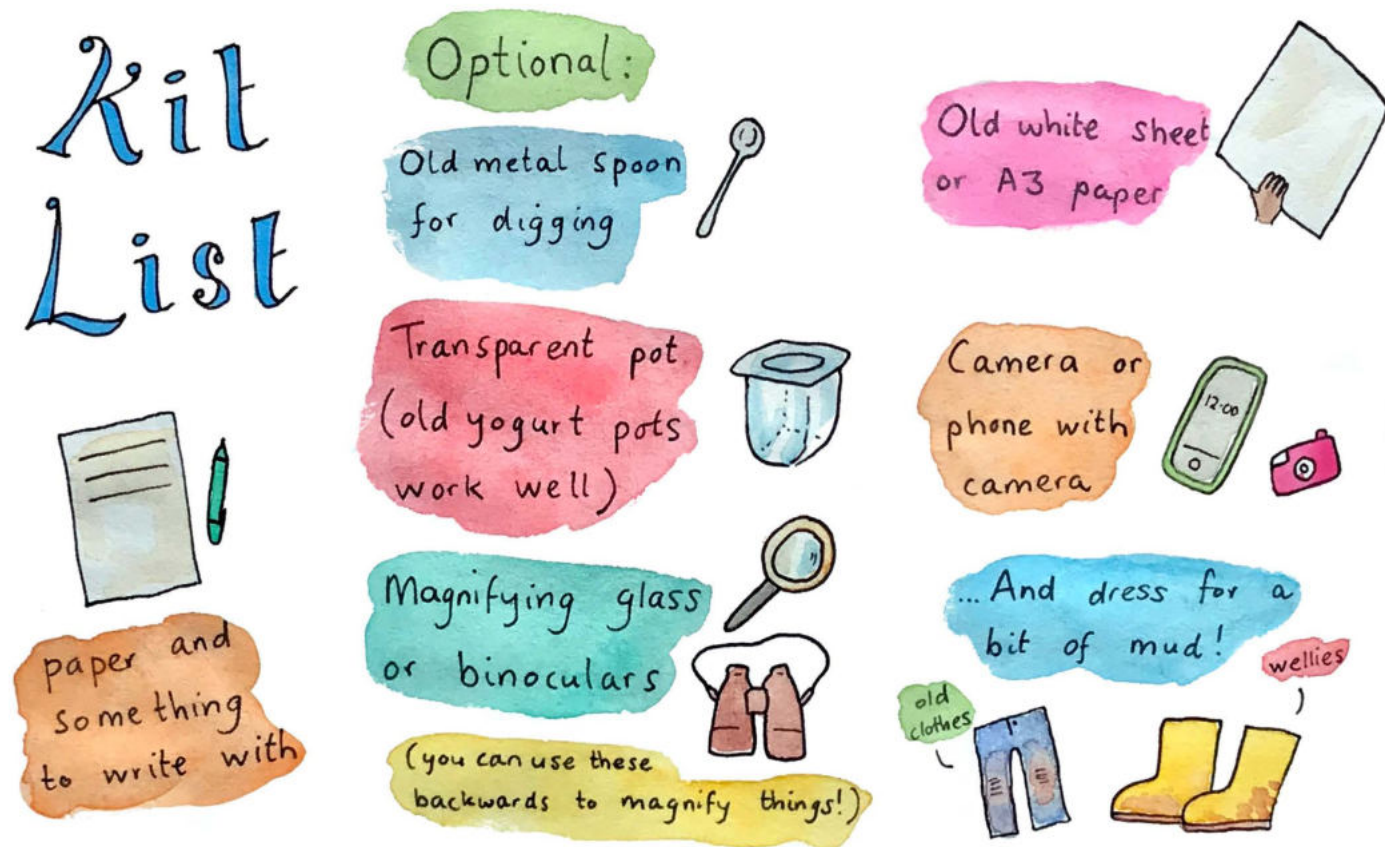 Kit
List
paper and
something
to write with
Optional:
Old metal spoon
for digging
Transparent pot
(old yogurt pots
work well)
Magnifying glass
or binoculars
(you can use these
backwards to magnify things!)
Old white sheet
or A3 paper
Camera or
phone with
camera
12:00
...And dress for a
bit of mud!
old
clothes
wellies